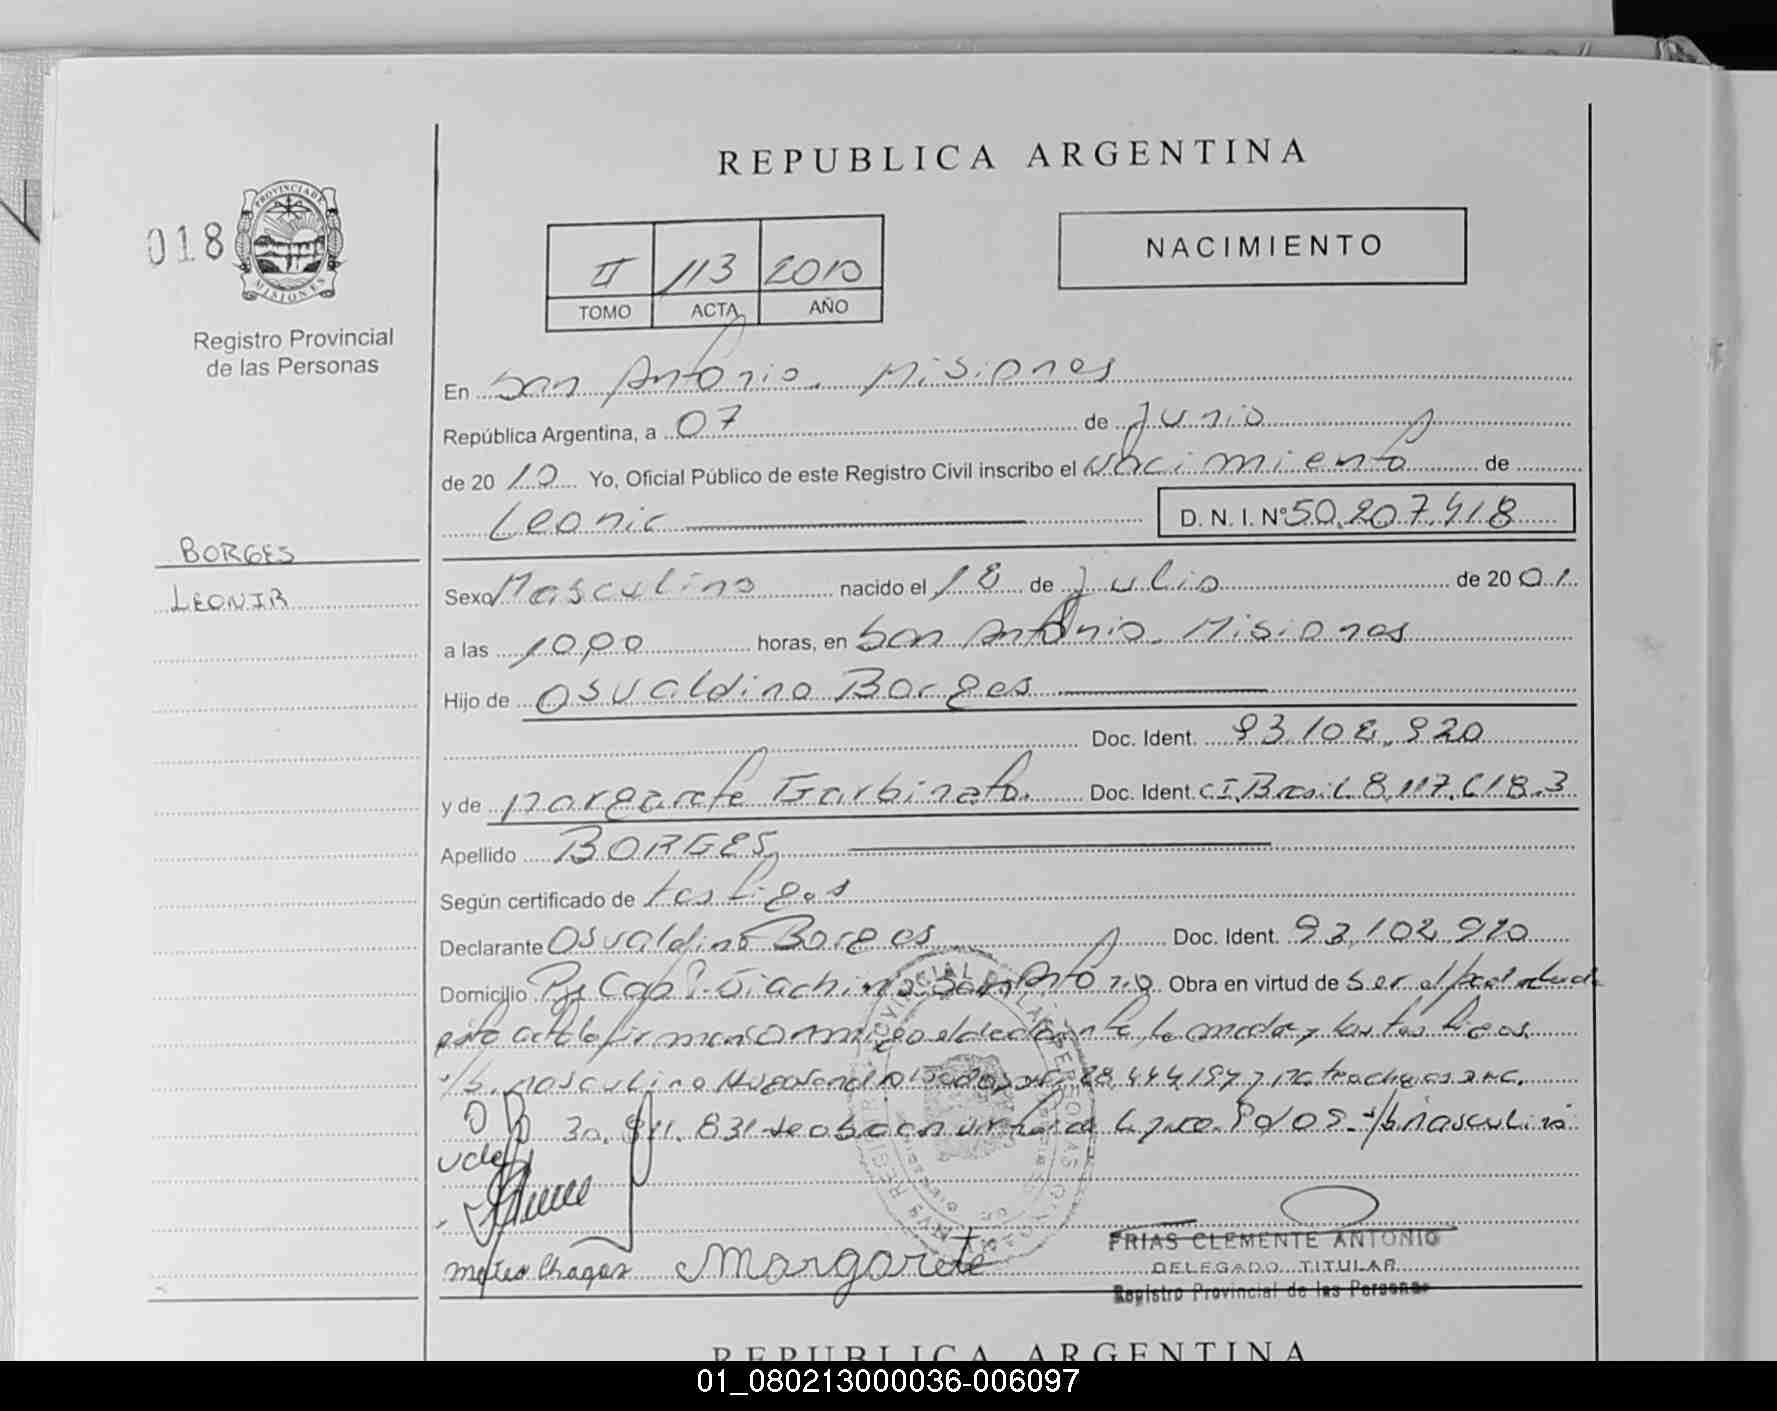 REPUBLICA ARGENTINA
018
PROVINCIA DE
MISIONES
Registro Provincial
de las Personas
II 113 2010
TOMO ACTA AÑO
NACIMIENTO
En San Antonio. Misiones
República Argentina, a 07 de Junio
de 2010 Yo, Oficial Público de este Registro Civil inscribo el nacimiento de
Leonir D. N. I. Nº 50.207.418
BORGES
LEONIR
Sexo Masculino nacido el 18 de julio de 2001
a las 10,00 horas, en San Antonio. Misiones
Hijo de Osvaldino Borges
Doc. Ident. 93.102.920
y de Margarete Garbinato. Doc. Ident. CI.Brasil 8.117.618.3
Apellido BORGES
Según certificado de testigos
Declarante Osvaldino Borges Doc. Ident. 93.102.920
Domicilio San Antonio Obra en virtud de ser el padre
esta acta la firman conmigo el declarante la madre y los testigos
masculino
30.811.831 masculino
Mateo Chagas Margarete
FRIAS CLEMENTE ANTONIO
DELEGADO TITULAR
Registro Provincial de las Personas
REPUBLICA ARGENTINA
01_080213000036-006097